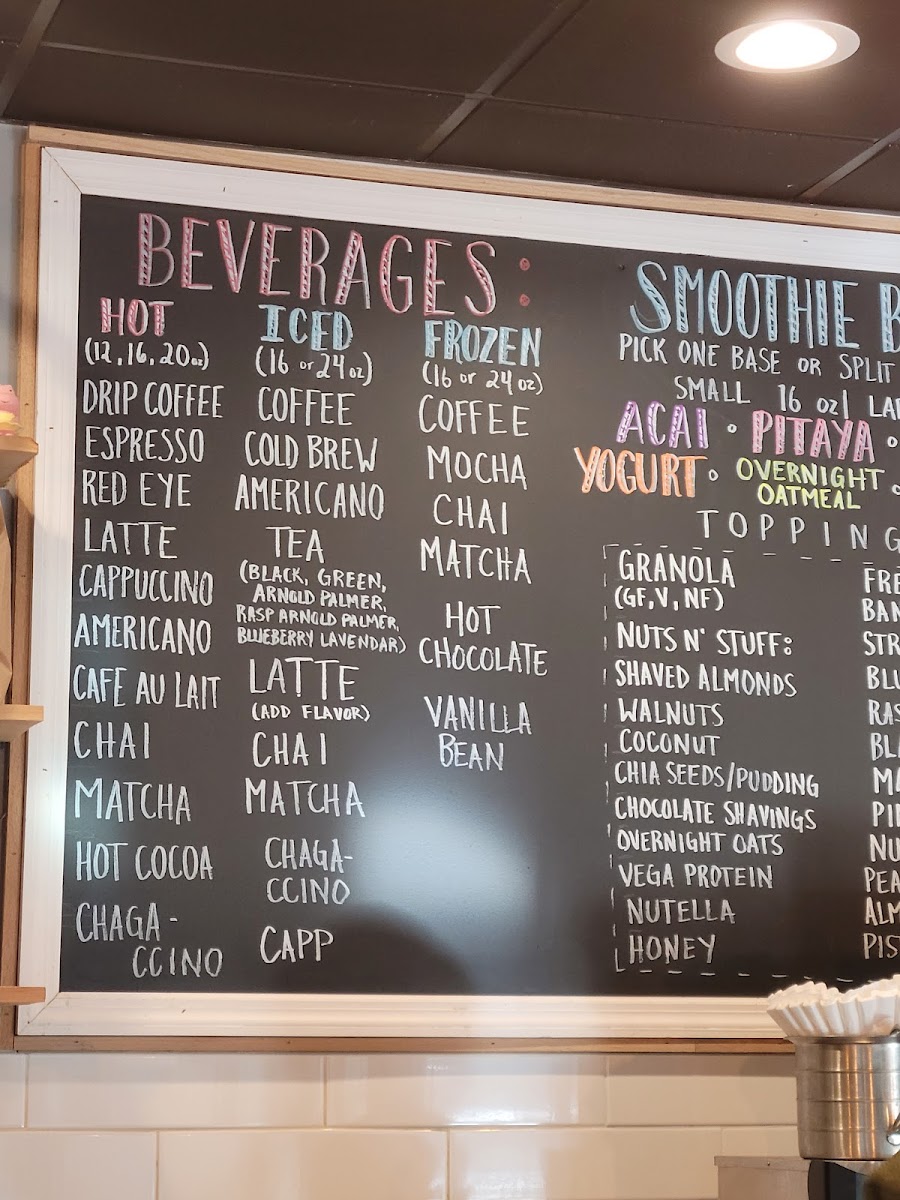 BEVERAGES:
HOT
(12, 16, 20 oz)
DRIP COFFEE
ESPRESSO
RED EYE
LATTE
CAPPUCCINO
AMERICANO
CAFE AU LAIT
CHAI
MATCHA
HOT COCOA
CHAGA-
CCINO
ICED
(16 or 24 oz)
COFFEE
COLD BREW
AMERICANO
TEA
(BLACK, GREEN,
ARNOLD PALMER,
RASP ARNOLD PALMER,
BLUEBERRY LAVENDAR)
LATTE
(ADD FLAVOR)
CHAI
MATCHA
CHAGA-
CCINO
CAPP
FROZEN
(16 or 24 oz)
COFFEE
MOCHA
CHAI
MATCHA
HOT
CHOCOLATE
VANILLA
BEAN
SMOOTHIE B
PICK ONE BASE OR SPLIT
SMALL 16 oz | LA
ACAI • PITAYA •
YOGURT • OVERNIGHT
OATMEAL
TOPPING
GRANOLA
(GF, V, NF)
NUTS N' STUFF:
SHAVED ALMONDS
WALNUTS
COCONUT
CHIA SEEDS/PUDDING
CHOCOLATE SHAVINGS
OVERNIGHT OATS
VEGA PROTEIN
NUTELLA
HONEY
FRE
BAN
STR
BLU
RAS
BLA
MA
PI
NU
PEA
ALM
PIS